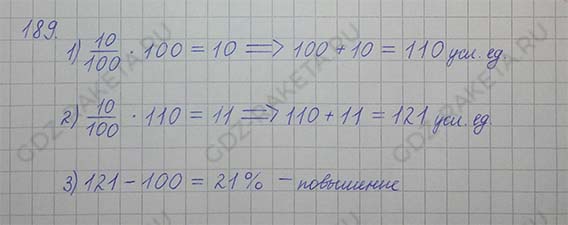 189.
1) 10/100 · 100 = 10 => 100 + 10 = 110 усл. ед.
2) 10/100 · 110 = 11 => 110 + 11 = 121 усл. ед.
3) 121 - 100 = 21% - повышение
GDZ-RAKETA.RU
GDZ-RAKETA.RU
GDZ-RAKETA.RU